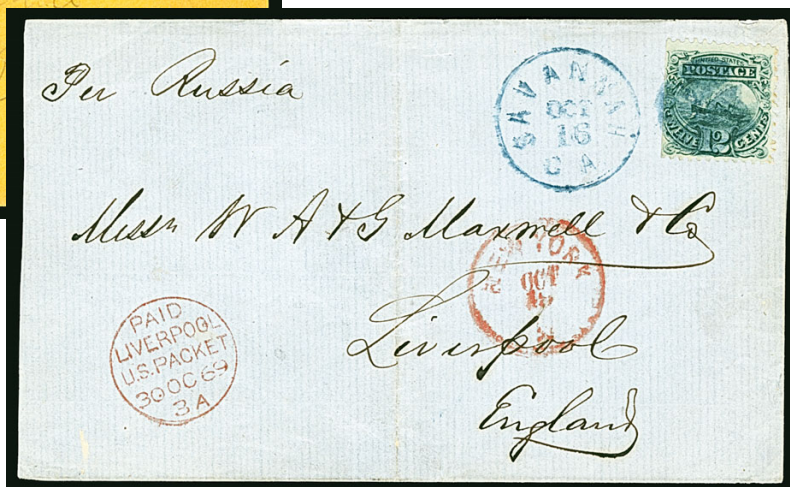 Per Russia
SAVANNAH
OCT
16
GA
UNITED STATES
POSTAGE
TWELVE 12 CENTS
Messrs W A & G Maxwell & Co
NEW YORK
OCT
Liverpool
England
PAID
LIVERPOOL
U.S. PACKET
30 OC 69
3 A